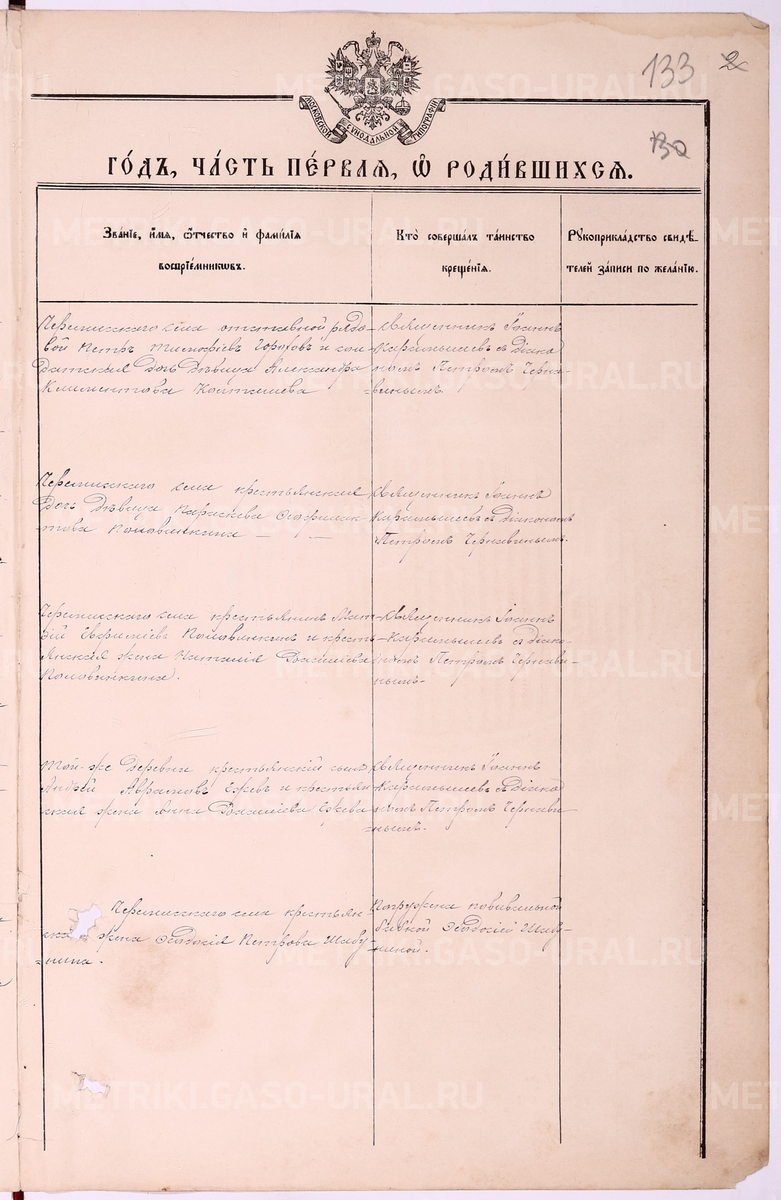 133 2
130
МОСКОВСКОЙ СѴНОДАЛЬНОЙ ТИПОГРАФІИ
ГО́ДЪ, ЧА́СТЬ ПЕ́РВАЯ, Ѡ҆ РОДИ́ВШИХСЯ.
Зва́нїе, и҆́мя, ѻ҆́тчество и҆ фами́лїя
воспрїе́мникѡвъ.
Кто̀ соверша́лъ та́инство
креще́нїя.
Рꙋкоприкла́дство свидѣ́-
телей за́писи по жела́нїю.
Черемисскаго села отставной рядо-
вой Петръ Тимофѣевъ Горохов и сол-
датская дочь дѣвица Александра
Климентова
Священникъ Іоаннъ
Карамышевъ съ Діако
номъ Петромъ Черня-
винымъ
Черемисскаго села крестьянская
дочь дѣвица Параскева
Половинкина
Священникъ Іоаннъ
Карамышевъ съ Діакономъ
Петромъ Чернявинымъ.
Черемисскаго села крестьянинъ Мат-
ѳій Евфиміевъ Половинкинъ и кресть-
янская жена Наталія Васильева
Половинкина.
Священникъ Іоаннъ
Карамышевъ съ Діако-
номъ Петромъ Черняви-
нымъ.
Той-же деревни крестьянскій сынъ
Андрей Аврамовъ Ежевъ и крестьян
ская жена Анна Васильева Ежева
Священникъ Іоаннъ
Карамышевъ съ Діако
номъ Петромъ Черняви
нымъ.
Черемисскаго села крестьян-
ская жена Евдокія Петрова Шабу-
нина.
Погружена повивальной
бабкой Евдокіей Шабу-
ниной.
METRIKI.GASO-URAL.RU